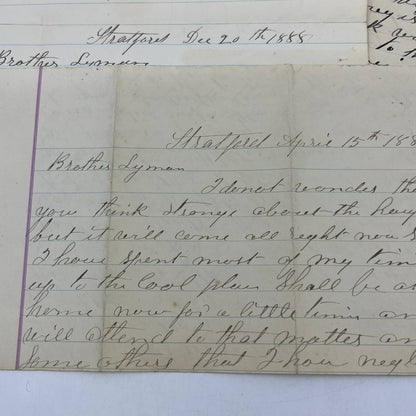 Stratford Dec 20th 1888
Brother Lyman
Stratford April 15th 188
Brother Lyman
I do not wonder tha
you think strange about the hay
but it will come all right now s
I have spent most of my tim
up to the Cool plan Shall be a
home now for a little time an
will attend to that matter an
Some others that I have negl